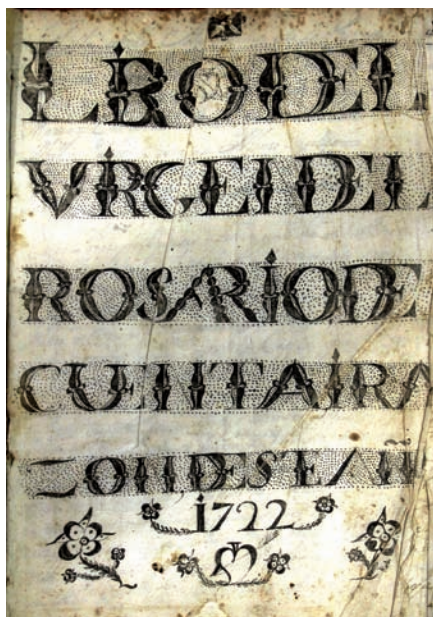 LIBRO DE L
VIRGEN DEL
ROSARIO DE
CUENTA I RA
ZON DESTE AÑ
1722